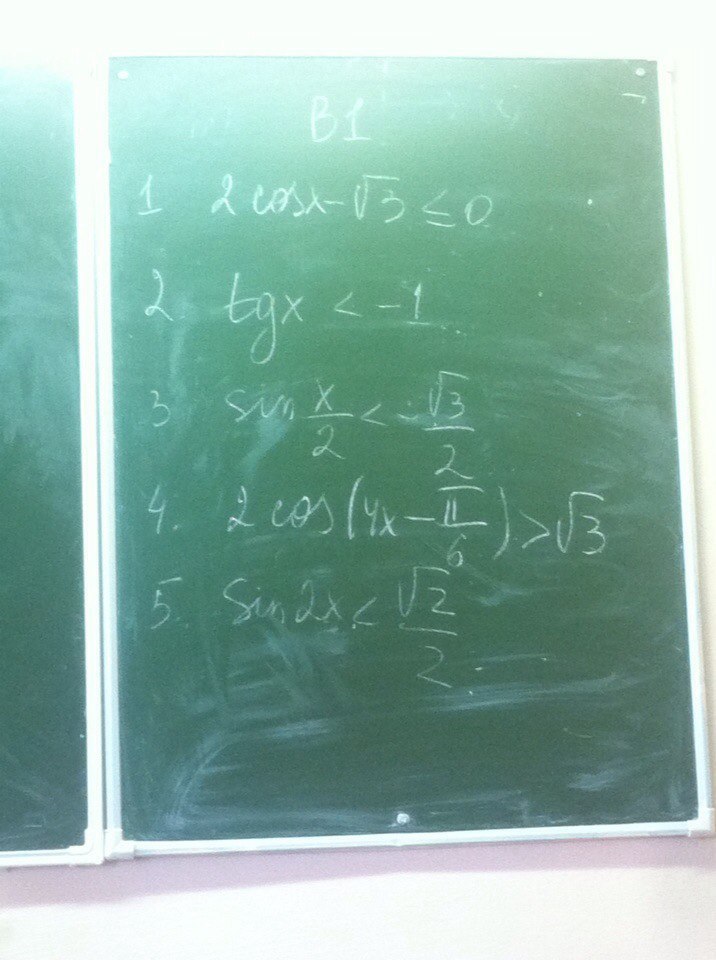 B1
1 2cosx-√3 ≤ 0
2. tgx < -1
3 sin x/2 < -√3/2
4. 2cos(4x - π/6) > √3
5. Sin2x < √2/2